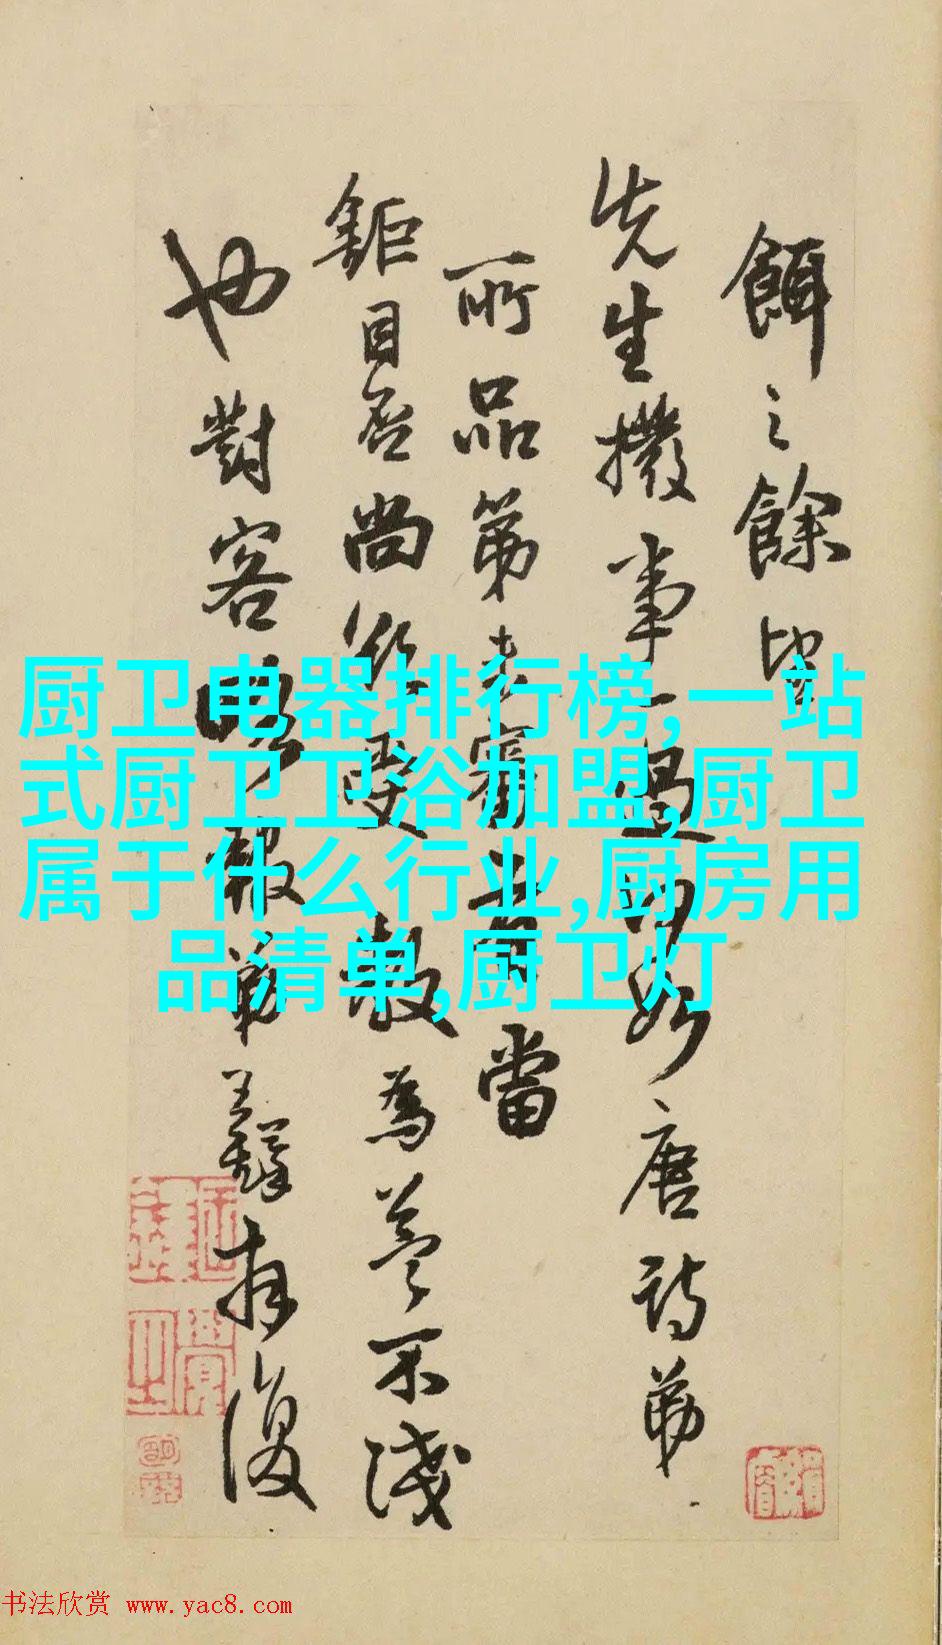 餌之餘皆
先生撥事一過 唐詩弟
所品第未審 當
鉅目否尚祈 教為 不淺
也對客 報 復
厨卫电器排行榜,一站
式厨卫卫浴加盟,厨卫
属于什么行业,厨房用
品清单,厨卫灯
书法欣赏 www.yac8.com